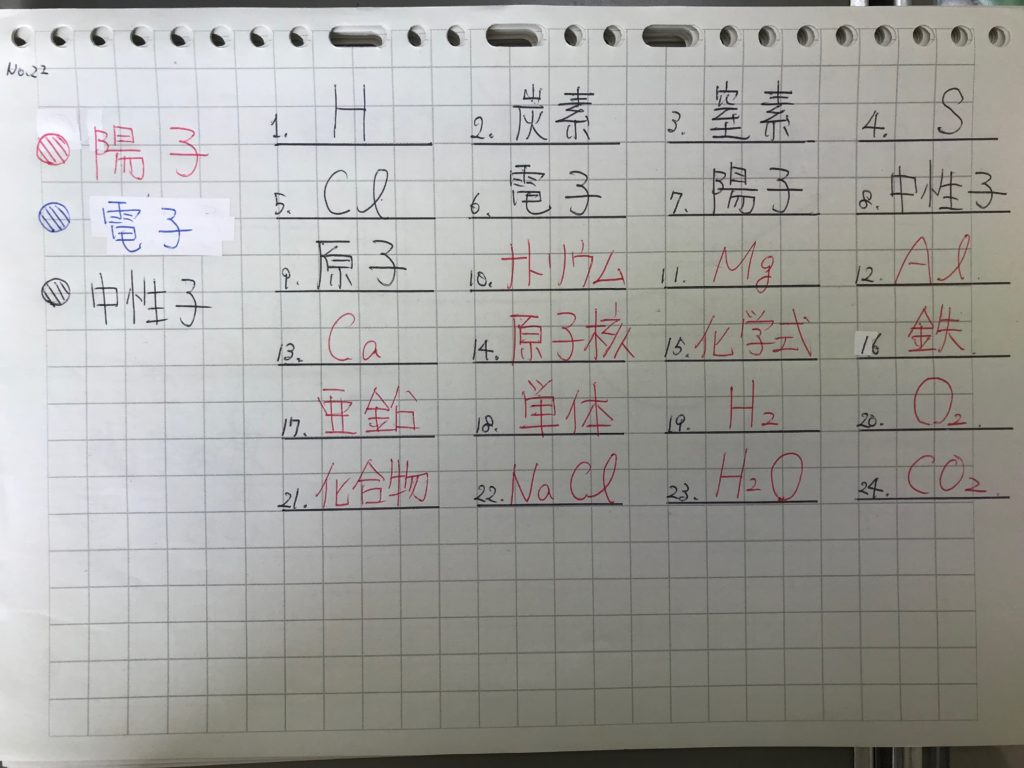 No.22
陽子
電子
中性子
1. H 2. 炭素 3. 窒素 4. S
5. Cl 6. 電子 7. 陽子 8. 中性子
9. 原子 10. ナトリウム 11. Mg 12. Al
13. Ca 14. 原子核 15. 化学式 16 鉄
17. 亜鉛 18. 単体 19. H₂ 20. O₂
21. 化合物 22. NaCl 23. H₂O 24. CO₂